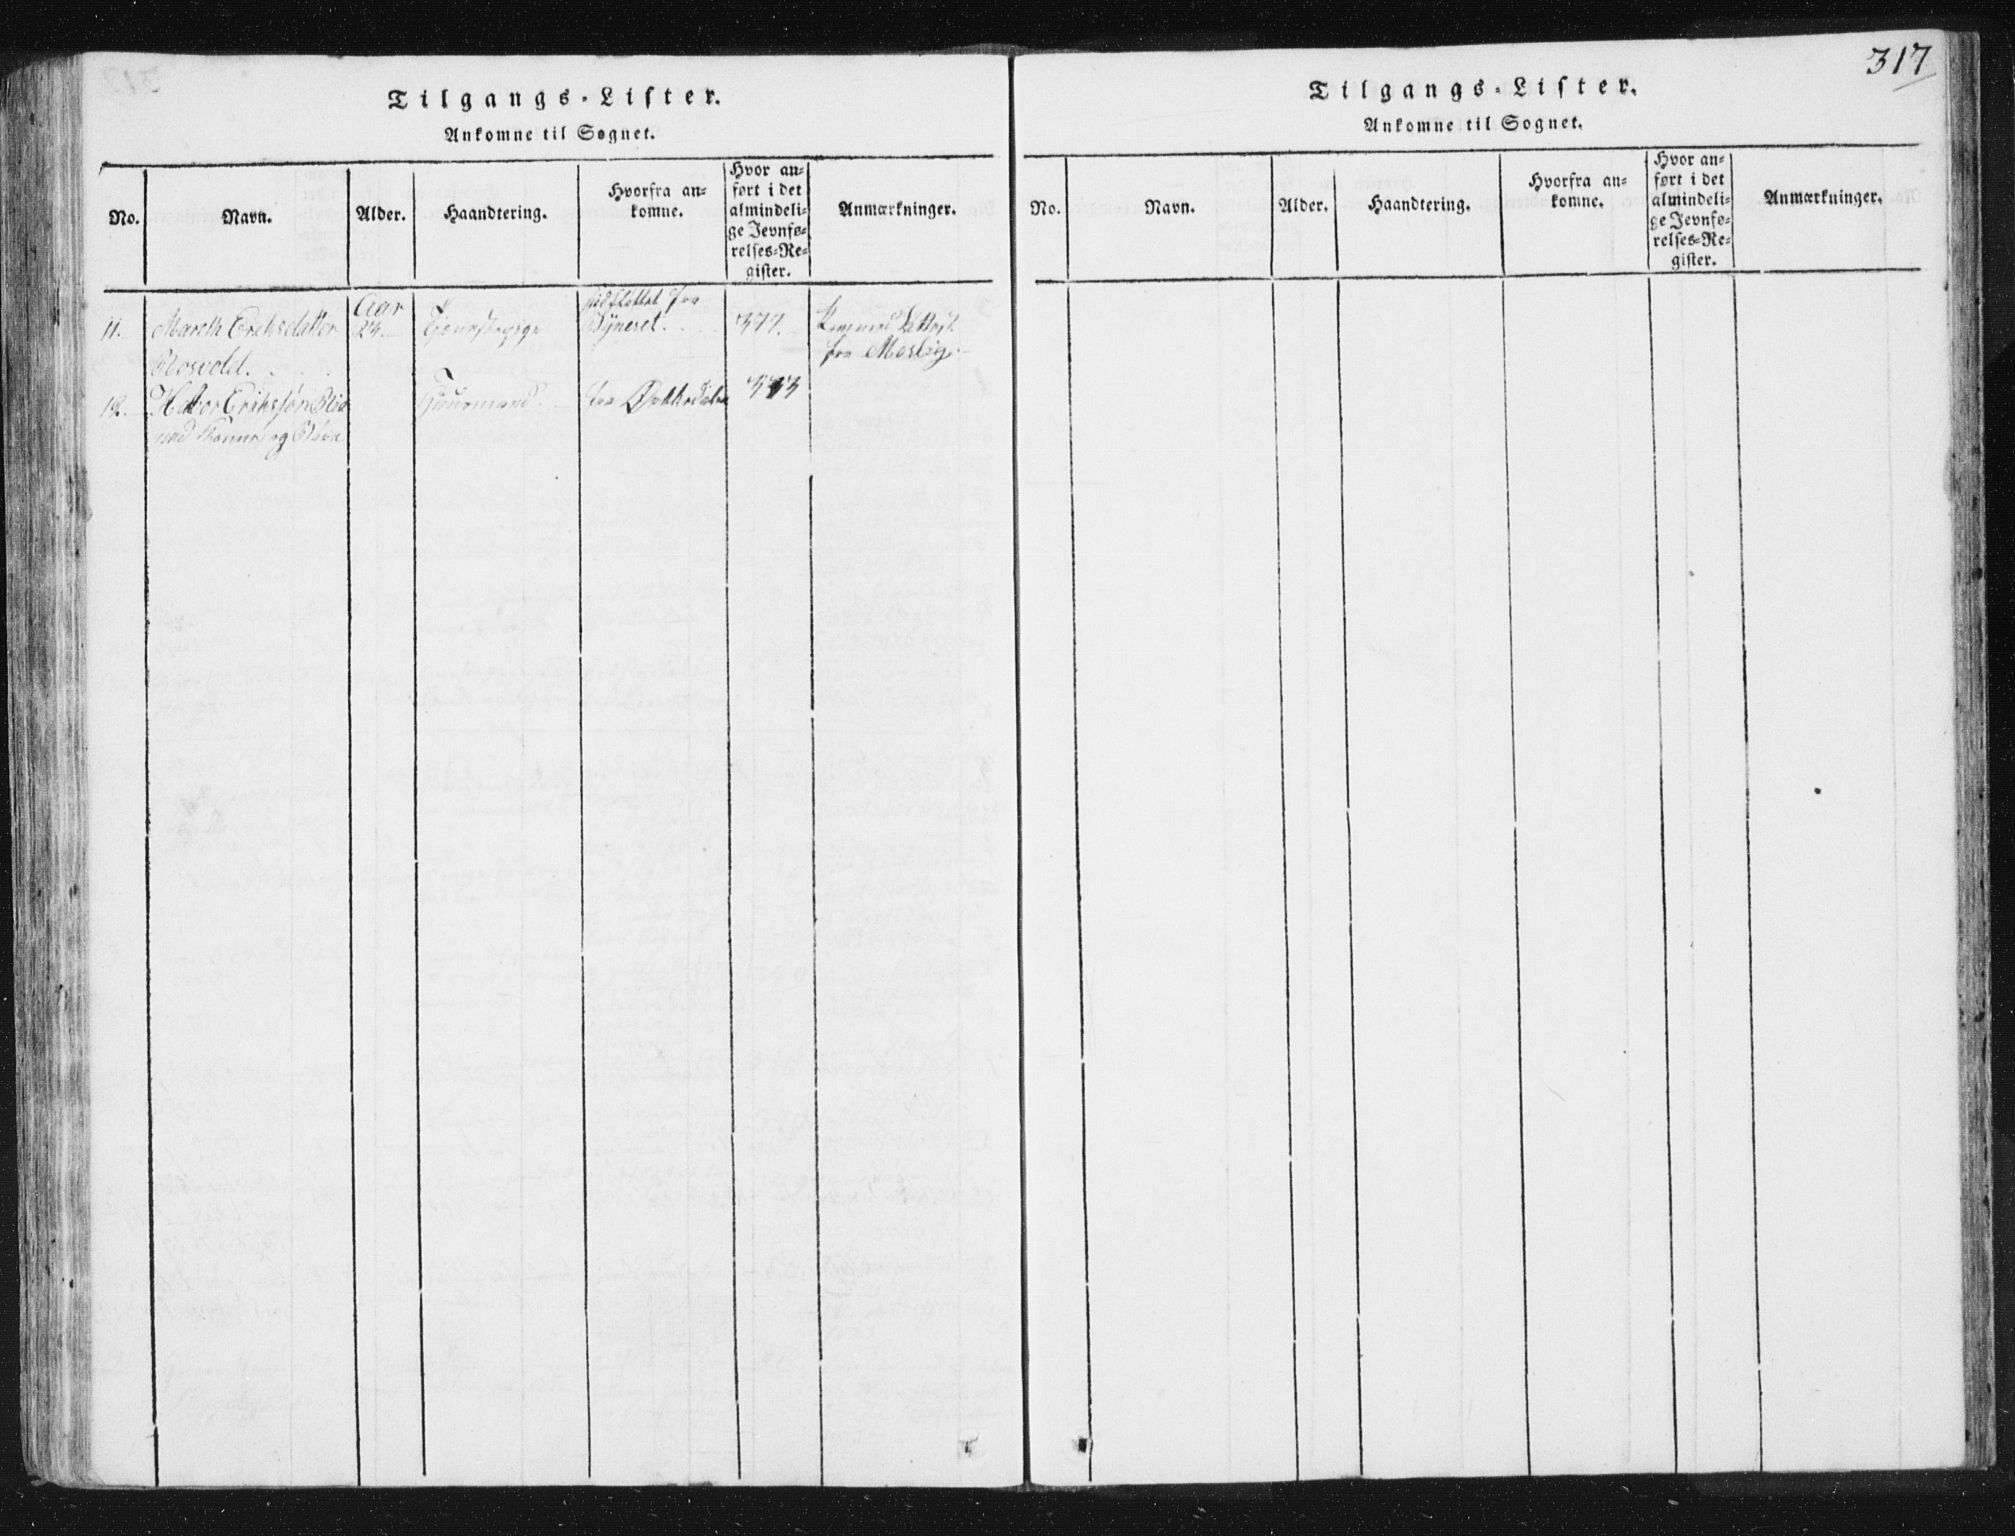 Tilgangs-Lister.
Ankomne til Sognet.
No.
Navn.
Alder.
Haandtering.
Hvorfra an-
komne.
Hvor an-
ført i det
almindeli-
ge Jevnfø-
relses-Re-
gister.
Anmærkninger.
11.
Mareth Erichsdatter
Rosvold.
Aar
23.
Tjenestepige
fra
Byneset.
377.
fra
12.
Erichssøn
med Kone og Børn
Huusmand.
fra
317
Tilgangs-Lister.
Ankomne til Sognet.
No.
Navn.
Alder.
Haandtering.
Hvorfra an-
komne.
Hvor an-
ført i det
almindeli-
ge Jevnfø-
relses-Re-
gister.
Anmærkninger.